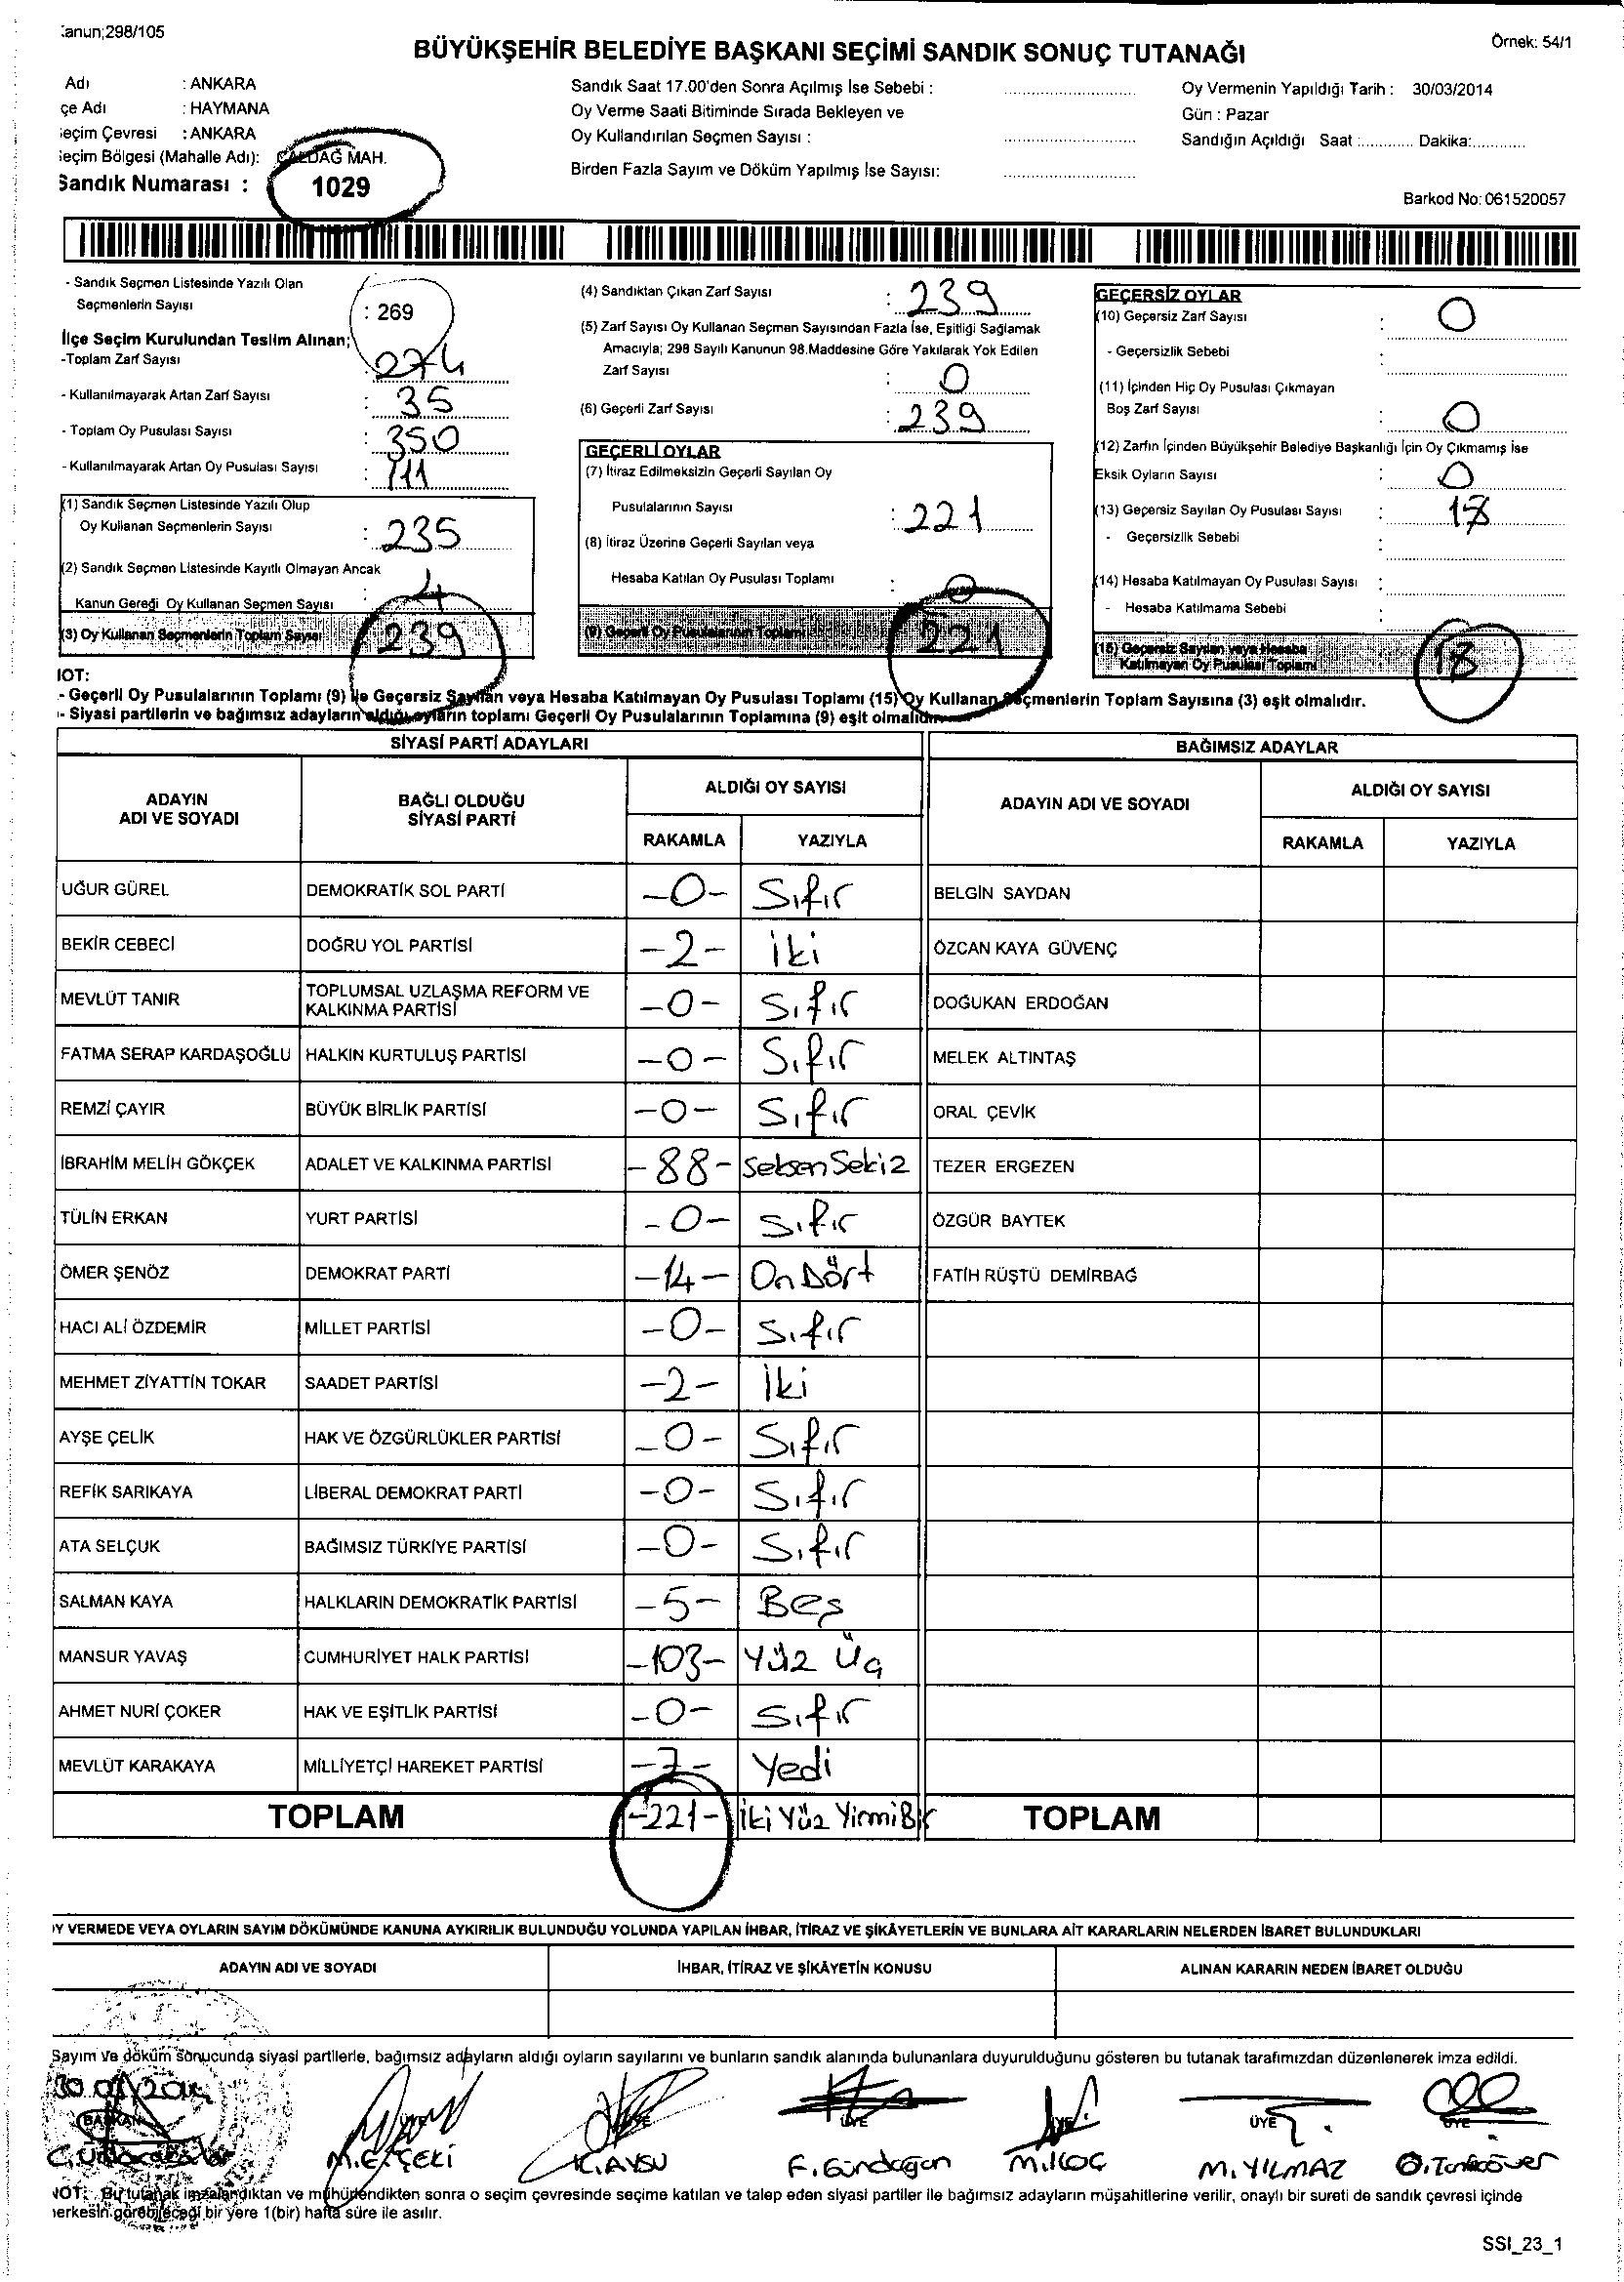 :anun;298/105
Örnek: 54/1
BÜYÜKŞEHİR BELEDİYE BAŞKANI SEÇİMİ SANDIK SONUÇ TUTANAĞI
Adı : ANKARA
çe Adı : HAYMANA
eçim Çevresi : ANKARA
eçim Bölgesi (Mahalle Adı): ÇALDAĞ MAH.
Sandık Numarası : 1029
Sandık Saat 17.00'den Sonra Açılmış İse Sebebi :
Oy Verme Saati Bitiminde Sırada Bekleyen ve
Oy Kullandırılan Seçmen Sayısı :
Birden Fazla Sayım ve Döküm Yapılmış İse Sayısı:
Oy Vermenin Yapıldığı Tarih : 30/03/2014
Gün : Pazar
Sandığın Açıldığı Saat :............ Dakika:............
Barkod No: 061520057
- Sandık Seçmen Listesinde Yazılı Olan
Seçmenlerin Sayısı : 269
İlçe Seçim Kurulundan Teslim Alınan;
-Toplam Zarf Sayısı : 274
- Kullanılmayarak Artan Zarf Sayısı : 35
- Toplam Oy Pusulası Sayısı : 350
- Kullanılmayarak Artan Oy Pusulası Sayısı : 111
(1) Sandık Seçmen Listesinde Yazılı Olup
Oy Kullanan Seçmenlerin Sayısı : 235
(2) Sandık Seçmen Listesinde Kayıtlı Olmayan Ancak
Kanun Gereği Oy Kullanan Seçmen Sayısı : 4
(3) Oy Kullanan Seçmenlerin Toplam Sayısı 239
(4) Sandıktan Çıkan Zarf Sayısı : 239
(5) Zarf Sayısı Oy Kullanan Seçmen Sayısından Fazla İse, Eşitliği Sağlamak
Amacıyla; 298 Sayılı Kanunun 98.Maddesine Göre Yakılarak Yok Edilen
Zarf Sayısı : 0
(6) Geçerli Zarf Sayısı : 239
GEÇERLİ OYLAR
(7) İtiraz Edilmeksizin Geçerli Sayılan Oy
Pusulalarının Sayısı : 221
(8) İtiraz Üzerine Geçerli Sayılan veya
Hesaba Katılan Oy Pusulası Toplamı : 0
(9) Geçerli Oy Pusulalarının Toplamı 221
GEÇERSİZ OYLAR
(10) Geçersiz Zarf Sayısı : 0
- Geçersizlik Sebebi :
(11) İçinden Hiç Oy Pusulası Çıkmayan
Boş Zarf Sayısı : 0
(12) Zarfın İçinden Büyükşehir Belediye Başkanlığı İçin Oy Çıkmamış İse
Eksik Oyların Sayısı : 0
(13) Geçersiz Sayılan Oy Pusulası Sayısı : 18
- Geçersizlik Sebebi :
(14) Hesaba Katılmayan Oy Pusulası Sayısı :
- Hesaba Katılmama Sebebi :
(15) Geçersiz Sayılan veya Hesaba
Katılmayan Oy Pusulası Toplamı 18
NOT:
- Geçerli Oy Pusulalarının Toplamı (9) ile Geçersiz Sayılan veya Hesaba Katılmayan Oy Pusulası Toplamı (15) Oy Kullanan Seçmenlerin Toplam Sayısına (3) eşit olmalıdır.
- Siyasi partilerin ve bağımsız adayların aldığı oyların toplamı Geçerli Oy Pusulalarının Toplamına (9) eşit olmalıdır.
SİYASİ PARTİ ADAYLARI
BAĞIMSIZ ADAYLAR
ADAYIN ADI VE SOYADI
BAĞLI OLDUĞU SİYASİ PARTİ
ALDIĞI OY SAYISI
RAKAMLA YAZIYLA
ADAYIN ADI VE SOYADI
ALDIĞI OY SAYISI
RAKAMLA YAZIYLA
UĞUR GÜREL DEMOKRATİK SOL PARTİ -0- Sıfır BELGİN SAYDAN
BEKİR CEBECİ DOĞRU YOL PARTİSİ -2- İki ÖZCAN KAYA GÜVENÇ
MEVLÜT TANIR TOPLUMSAL UZLAŞMA REFORM VE KALKINMA PARTİSİ -0- Sıfır DOĞUKAN ERDOĞAN
FATMA SERAP KARDAŞOĞLU HALKIN KURTULUŞ PARTİSİ -0- Sıfır MELEK ALTINTAŞ
REMZİ ÇAYIR BÜYÜK BİRLİK PARTİSİ -0- Sıfır ORAL ÇEVİK
İBRAHİM MELİH GÖKÇEK ADALET VE KALKINMA PARTİSİ -88- Seksen Sekiz TEZER ERGEZEN
TÜLİN ERKAN YURT PARTİSİ -0- Sıfır ÖZGÜR BAYTEK
ÖMER ŞENÖZ DEMOKRAT PARTİ -14- On Dört FATİH RÜŞTÜ DEMİRBAĞ
HACI ALİ ÖZDEMİR MİLLET PARTİSİ -0- Sıfır
MEHMET ZİYATTİN TOKAR SAADET PARTİSİ -2- İki
AYŞE ÇELİK HAK VE ÖZGÜRLÜKLER PARTİSİ -0- Sıfır
REFİK SARIKAYA LİBERAL DEMOKRAT PARTİ -0- Sıfır
ATA SELÇUK BAĞIMSIZ TÜRKİYE PARTİSİ -0- Sıfır
SALMAN KAYA HALKLARIN DEMOKRATİK PARTİSİ -5- Beş
MANSUR YAVAŞ CUMHURİYET HALK PARTİSİ -103- Yüz Üç
AHMET NURİ ÇOKER HAK VE EŞİTLİK PARTİSİ -0- Sıfır
MEVLÜT KARAKAYA MİLLİYETÇİ HAREKET PARTİSİ -7- Yedi
TOPLAM -221- İki Yüz Yirmi Bir TOPLAM
Y VERMEDE VEYA OYLARIN SAYIM DÖKÜMÜNDE KANUNA AYKIRILIK BULUNDUĞU YOLUNDA YAPILAN İHBAR, İTİRAZ VE ŞİKÂYETLERİN VE BUNLARA AİT KARARLARIN NELERDEN İBARET BULUNDUKLARI
ADAYIN ADI VE SOYADI İHBAR, İTİRAZ VE ŞİKÂYETİN KONUSU ALINAN KARARIN NEDEN İBARET OLDUĞU
Sayım ve döküm sonucunda siyasi partilerle, bağımsız adayların aldığı oyların sayılarını ve bunların sandık alanında bulunanlara duyurulduğunu gösteren bu tutanak tarafımızdan düzenlenerek imza edildi.
BAŞKAN ÜYE ÜYE ÜYE ÜYE ÜYE ÜYE
M.E.ÇEKİ K.AYSU F.Gündoğan M.KOÇ M.YILMAZ
NOT: Bu tutanak imzalandıktan ve mühürlendikten sonra o seçim çevresinde seçime katılan ve talep eden siyasi partiler ile bağımsız adayların müşahitlerine verilir, onaylı bir sureti de sandık çevresi içinde
herkesin görebileceği bir yere 1(bir) hafta süre ile asılır.
SSI_23_1